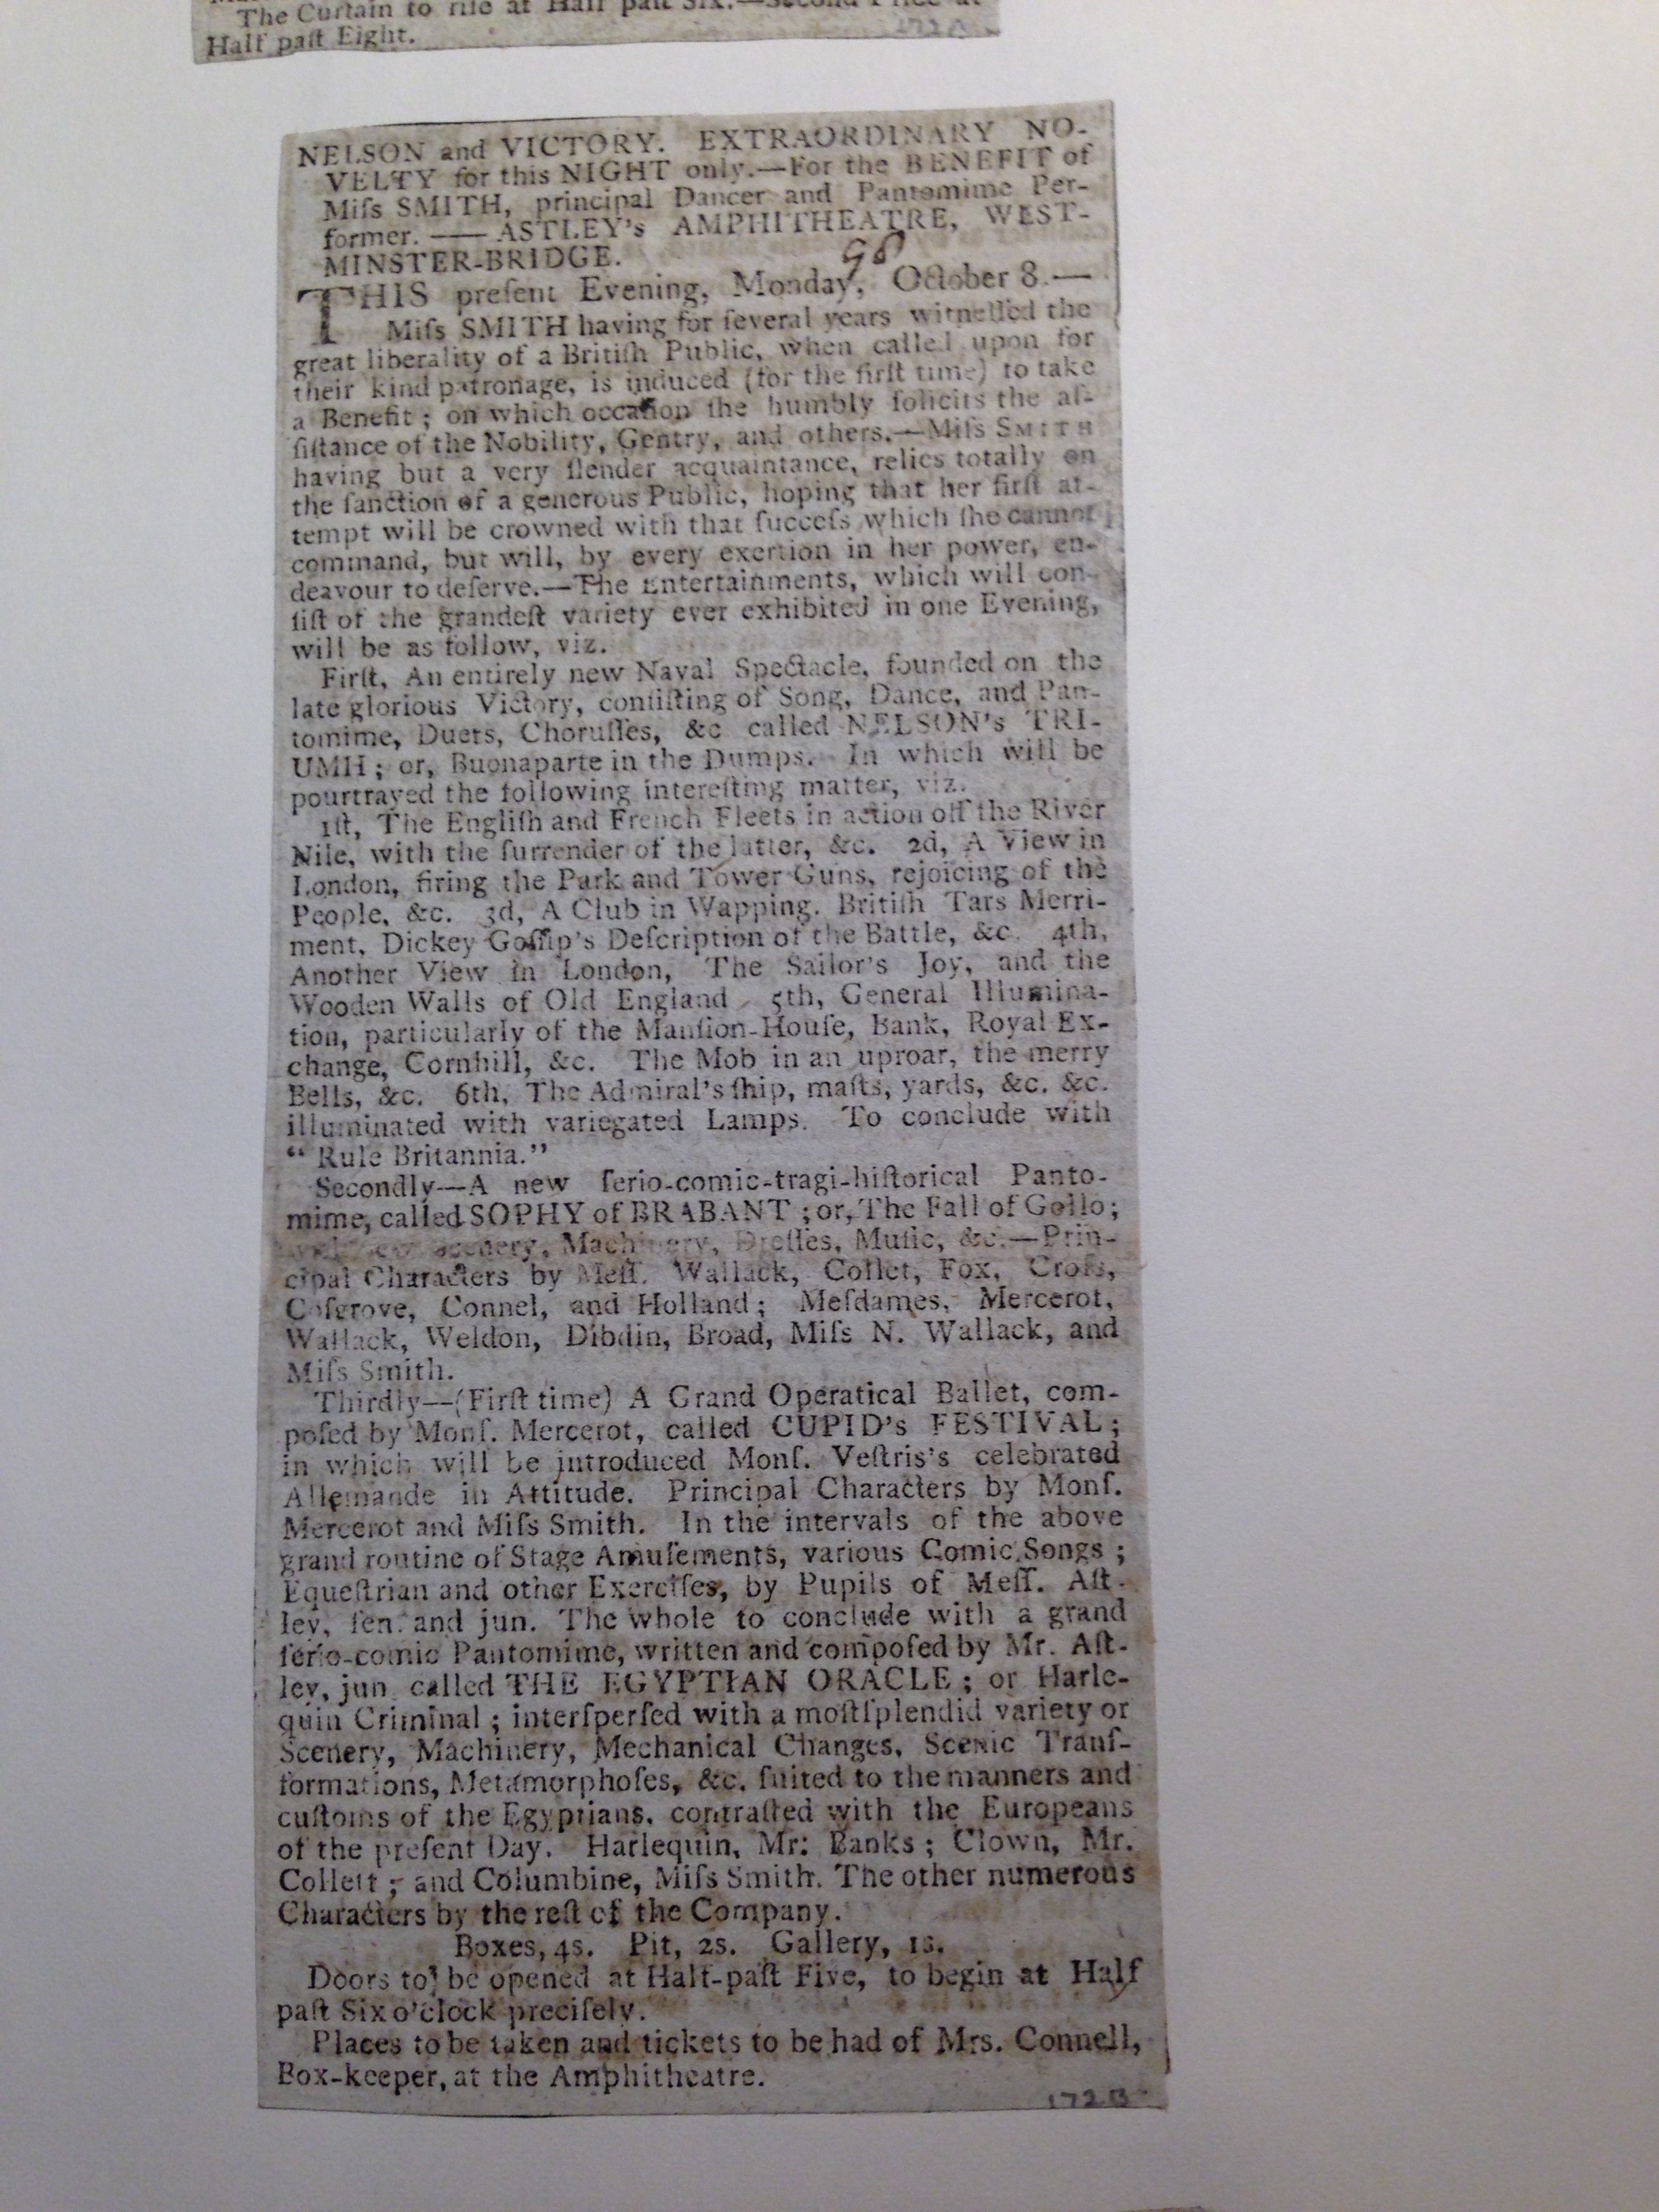 The Curtain to riſe at Half paſt Six.—Second Price at
Half paſt Eight.
172A
NELSON and VICTORY. EXTRAORDINARY NO-
VELTY for this NIGHT only.—For the BENEFIT of
Miſs SMITH, principal Dancer and Pantomime Per-
former. —— ASTLEY's AMPHITHEATRE, WEST-
MINSTER-BRIDGE.
98
THIS preſent Evening, Monday, October 8.—
Miſs SMITH having for ſeveral years witneſſed the
great liberality of a Britiſh Public, when called upon for
their kind patronage, is induced (for the firſt time) to take
a Benefit; on which occaſion ſhe humbly ſolicits the aſ-
ſiſtance of the Nobility, Gentry, and others.—Miſs SMITH
having but a very ſlender acquaintance, relies totally on
the ſanction of a generous Public, hoping that her firſt at-
tempt will be crowned with that ſucceſs which ſhe cannot
command, but will, by every exertion in her power, en-
deavour to deſerve.—The Entertainments, which will con-
ſiſt of the grandeſt variety ever exhibited in one Evening,
will be as follow, viz.
Firſt, An entirely new Naval Spectacle, founded on the
late glorious Victory, conſiſting of Song, Dance, and Pan-
tomime, Duets, Choruſſes, &c called NELSON's TRI-
UMH; or, Buonaparte in the Dumps. In which will be
pourtrayed the following intereſting matter, viz.
1ſt, The Engliſh and French Fleets in action off the River
Nile, with the ſurrender of the latter, &c. 2d, A View in
London, firing the Park and Tower Guns, rejoicing of the
People, &c. 3d, A Club in Wapping. Britiſh Tars Merri-
ment, Dickey Goſſip's Deſcription of the Battle, &c. 4th,
Another View in London, The Sailor's Joy, and the
Wooden Walls of Old England 5th, General Illumina-
tion, particularly of the Manſion-Houſe, Bank, Royal Ex-
change, Cornhill, &c. The Mob in an uproar, the merry
Bells, &c. 6th, The Admiral's ſhip, maſts, yards, &c. &c.
illuminated with variegated Lamps. To conclude with
“ Rule Britannia.”
Secondly—A new ſerio-comic-tragi-hiſtorical Panto-
mime, called SOPHY of BRABANT; or, The Fall of Gollo;
Scenery, Machinery, Dreſſes, Muſic, &c.—Prin-
cipal Characters by Meſſ. Wallack, Collet, Fox, Croſs,
Coſgrove, Connel, and Holland; Meſdames, Mercerot,
Wallack, Weldon, Dibdin, Broad, Miſs N. Wallack, and
Miſs Smith.
Thirdly—(Firſt time) A Grand Operatical Ballet, com-
poſed by Monſ. Mercerot, called CUPID's FESTIVAL;
in which will be introduced Monſ. Veſtris's celebrated
Allemande in Attitude. Principal Characters by Monſ.
Mercerot and Miſs Smith. In the intervals of the above
grand routine of Stage Amuſements, various Comic Songs;
Equeſtrian and other Exerciſes, by Pupils of Meſſ. Aſt-
ley, ſen. and jun. The whole to conclude with a grand
ſerio-comic Pantomime, written and compoſed by Mr. Aſt-
ley, jun. called THE EGYPTIAN ORACLE; or Harle-
quin Criminal; interſperſed with a moſt ſplendid variety or
Scenery, Machinery, Mechanical Changes, Scenic Tranſ-
formations, Metamorphoſes, &c. ſuited to the manners and
cuſtoms of the Egyptians, contraſted with the Europeans
of the preſent Day. Harlequin, Mr. Banks; Clown, Mr.
Collett; and Columbine, Miſs Smith. The other numerous
Characters by the reſt of the Company.
Boxes, 4s. Pit, 2s. Gallery, 1s.
Doors to be opened at Half-paſt Five, to begin at Half
paſt Six o'clock preciſely.
Places to be taken and tickets to be had of Mrs. Connell,
Box-keeper, at the Amphitheatre.
172B